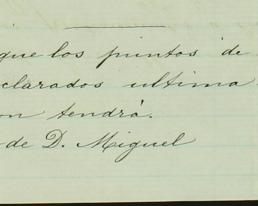 que los puntos de
clarados ultima
on tendrá.
de D. Miguel